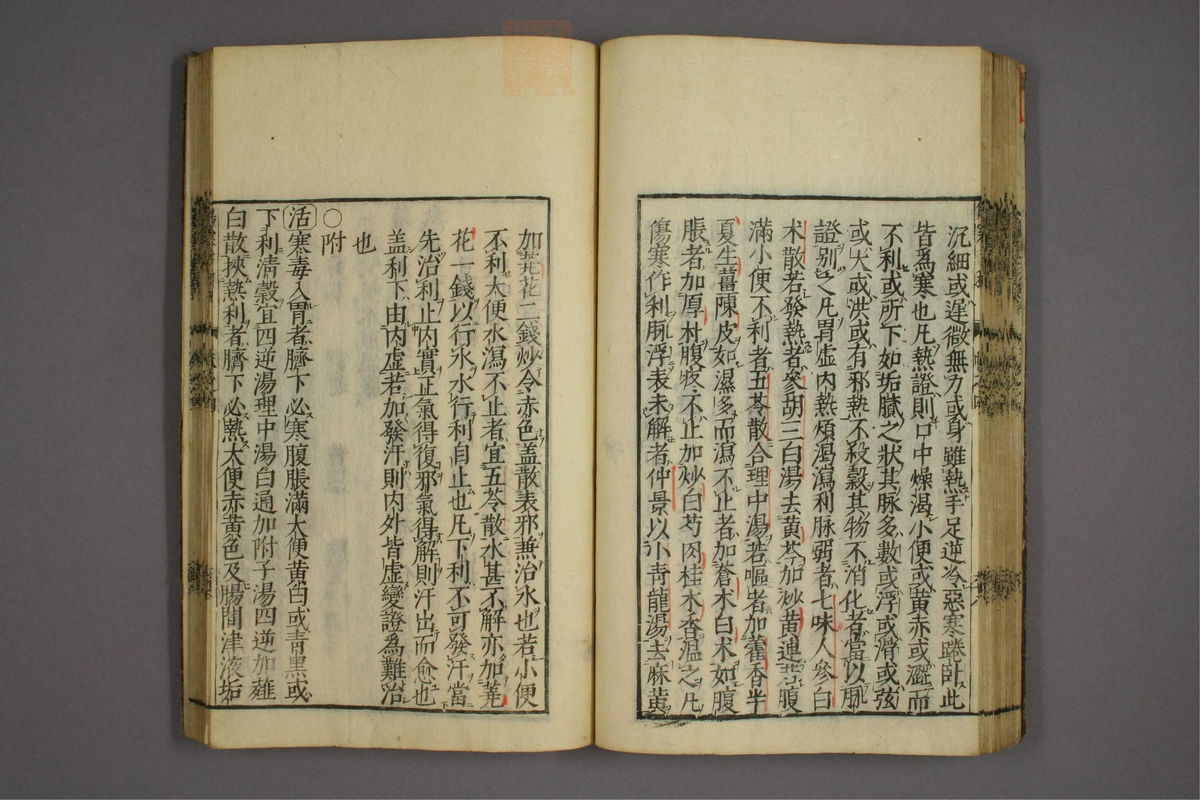 沉細或遲微無力或身雖熱手足逆冷惡寒踡卧此
皆爲寒也凡熱證則口中燥渴小便或黃赤或澀而
不利或所下如垢膩之狀其脉多數或浮或滑或弦
或大或洪或有邪熱不殺穀其物不消化者當以脉
證別之凡胃虛内熱煩渴瀉利脉弱者七味人參白
术散若發熱者參胡三白湯去黃芩加炒黃連若腹
滿小便不利者五苓散合理中湯若嘔者加藿香半
夏生薑陳皮如濕多而瀉不止者加蒼术白术如腹
脹者加厚朴腹疼不止加炒白芍肉桂木香温之凡
傷寒作利脉浮表未解者仲景以小靑龍湯去麻黃
加芫花二錢炒令赤色盖散表邪兼治水也若小便
不利大便水瀉不止者宜五苓散水甚不解亦加芫
花一錢以行水水行利自止也凡下利不可發汗當
先治利止内實正氣得復邪氣得解則汗出而愈也
盖利下由内虛若加發汗則内外皆虛變證爲難治
也
○附
活寒毒入胃者臍下必寒腹脹滿大便黃白或青黑或
下利清穀宜四逆湯理中湯白通加附子湯四逆加薤
白散挾熱利者臍下必熱大便赤黃色及腸間津液垢